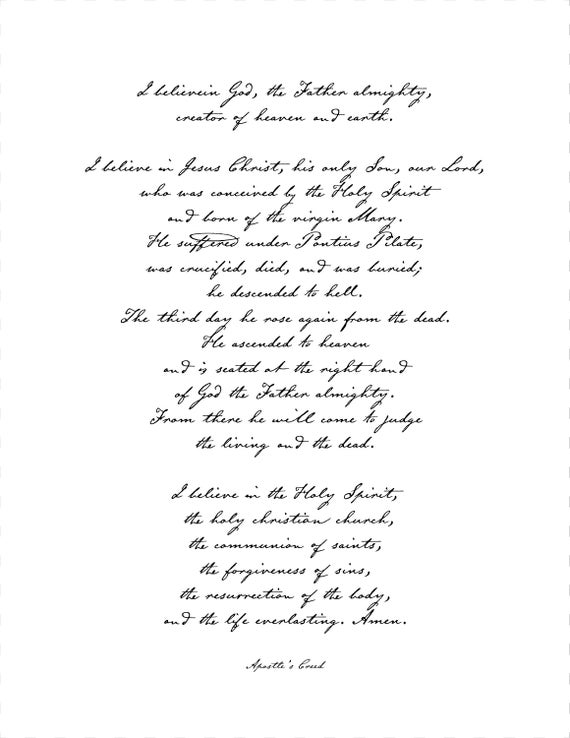 I believein God, the Father almighty,
creator of heaven and earth.
I believe in Jesus Christ, his only Son, our Lord,
who was conceived by the Holy Spirit
and born of the virgin Mary.
He suffered under Pontius Pilate,
was crucified, died, and was buried;
he descended to hell.
The third day he rose again from the dead.
He ascended to heaven
and is seated at the right hand
of God the Father almighty.
From there he will come to judge
the living and the dead.
I believe in the Holy Spirit,
the holy christian church,
the communion of saints,
the forgiveness of sins,
the resurrection of the body,
and the life everlasting. Amen.
Apostle's Creed